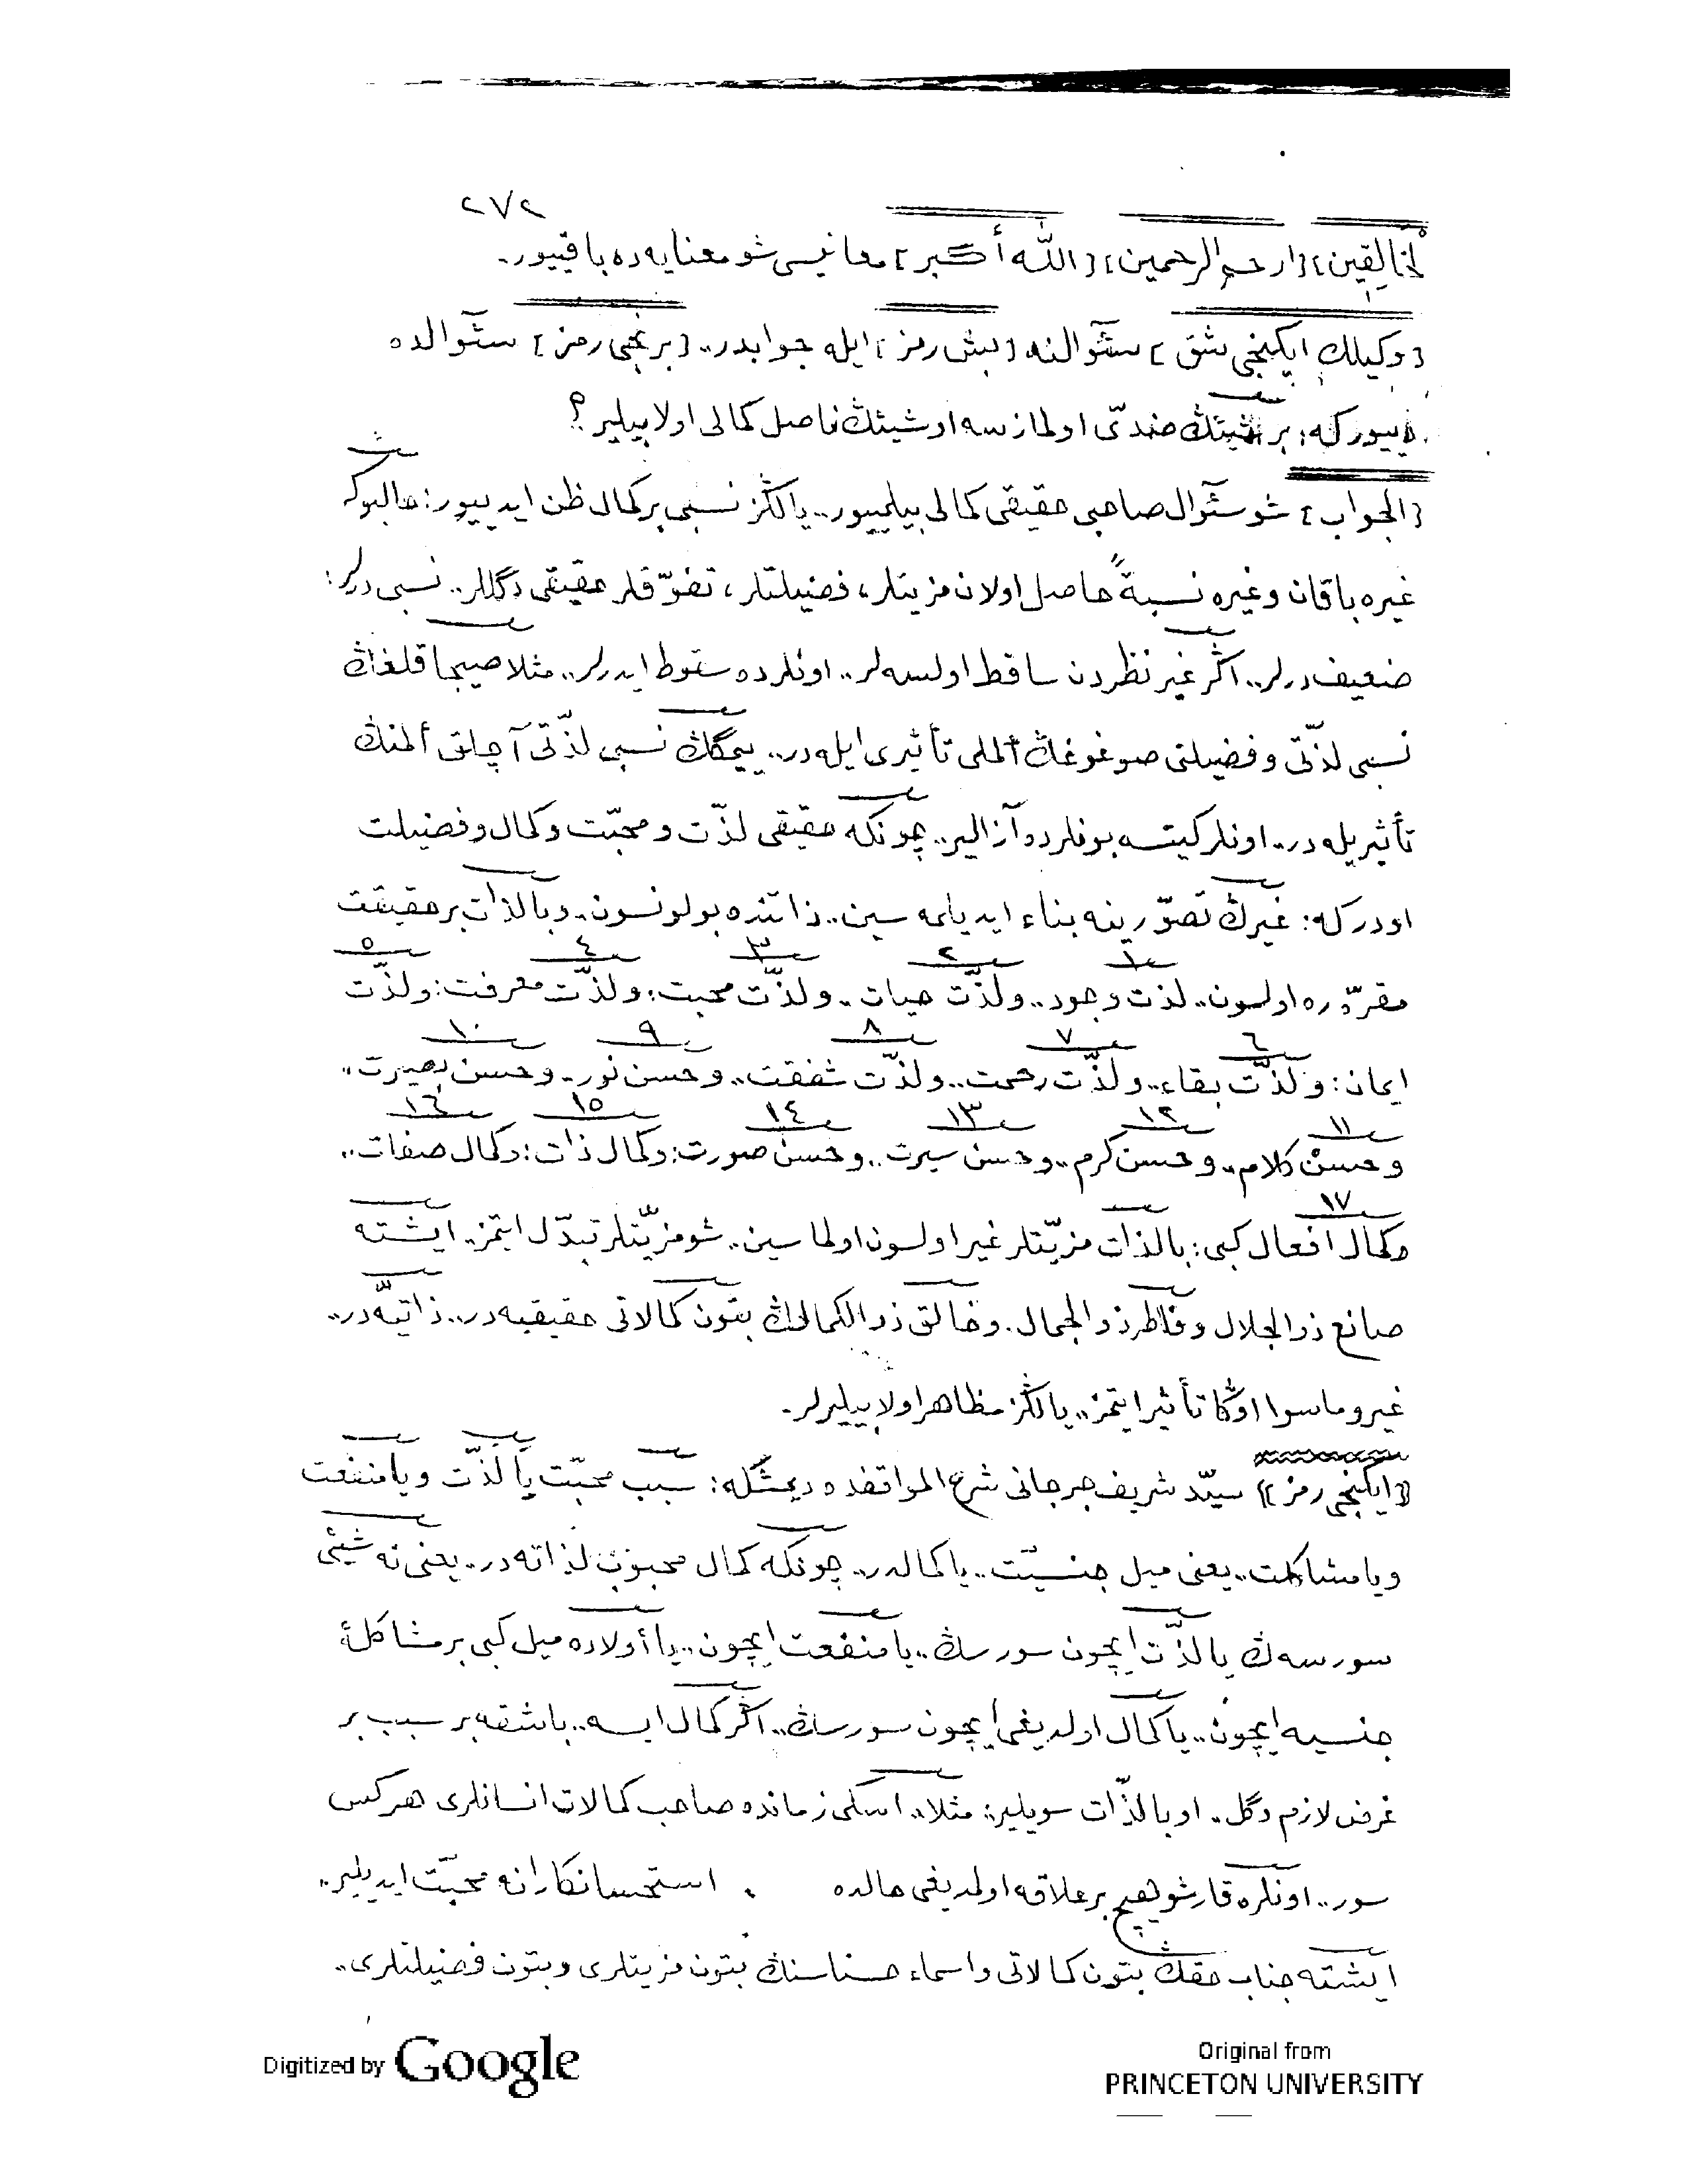 ٢٧٢
الخالقين] [ارحم الراحمين] [الله أكبر] معانيسى شو معنايه ده باقييور.
[وكيلك ايكنجى شق] سئوالنه [بش رمز] ايله جوابدر.. [برنجى رمز] سئوالده
دييوركه: بر شيئك ضدّى اولمازسه او شيئك ناصل كمالى اولابيلير؟
[الجواب] شو سئوال صاحبى حقيقى كمالى بيلمييور.. يالڭز نسبى بر كمال ظن ايدييور: حالبوكه
غيره باقان وغيره نسبةً حاصل اولان مزيتلر، فضيلتلر، تفوّقلر حقيقى دگللر.. نسبى درلر:
ضعيف درلر.. اگر غير نظردن ساقط اولسه لر.. اونلرده سقوط ايدرلر.. مثلا صيجاقلغڭ
نسبى لذّتى و فضيلتى صوغوغڭ ألملى تأثيرى ايله در.. ييمگڭ نسبى لذّتى آچلق ألمنڭ
تأثيريله در.. اونلر كيتسه بونلرده آزالير.. چونكه حقيقى لذّت و محبّت و كمال و فضيلت
اودركه: غيرڭ تصوّرينه بناء ايديلمه سين.. ذاتنده بولونسون.. وبالذات بر حقيقت
مقرّره اولسون.. لذت وجود.. ولذّت حيات.. ولذّت محبت: ولذّت معرفت: ولذّت
٥ ٤ ٣ ٢ ١
ايمان: ولذّت بقاء.. ولذّت رحمت.. ولذّت شفقت.. وحسن نور.. وحسن بصيرت..
١٠ ٩ ٨ ٧ ٦
وحسن كلام.. وحسن كرم.. وحسن سيرت.. وحسن صورت: وكمال ذات: وكمال صفات..
١٦ ١٥ ١٤ ١٣ ١٢ ١١
وكمال افعال كبى: بالذات مزيّتلر غير اولسون اولماسين.. شو مزيّتلر تبدّل ايتمز.. ايشته
١٧
صانع ذوالجلال وفاطر ذوالجمال. وخالق ذوالكمالڭ بتون كمالاتى حقيقيه در.. ذاتيّه در..
غير و ماسوا اوڭا تأثير ايتمز.. يالڭز مظاهر اولابيليرلر.
[ايكنجى رمز] سيّد شريف جرجانى شرح المواقفده ديمشكه: سبب محبّت يا لذّت ويا منفعت
ويا مشاكلت.. يعنى ميل جنسيّت.. يا كمالدر.. چونكه كمال محبوب لذاته در.. يعنى نه شيئى
سورسه ڭ يا لذّت ايچون سورسڭ.. يا منفعت ايچون.. يا أولاده ميل كبى بر مشاكلۀ
جنسيه ايچون.. يا كمال اولديغى ايچون سورسڭ.. اگر كمال ايسه.. باشقه بر سبب بر
غرض لازم دگل.. او بالذّات سويلير: مثلا.. اسكى زمانده صاحب كمالات انسانلرى هركس
سور.. اونلره قارشو هيچ بر علاقه اولمديغى حالده استحسانكارانه محبّت ايديلير..
ايشته جناب حقڭ بتون كمالاتى و اسماء حسناسنڭ بتون مزيتلرى وبتون فضيلتلرى..
Digitized by Google
Original from
PRINCETON UNIVERSITY